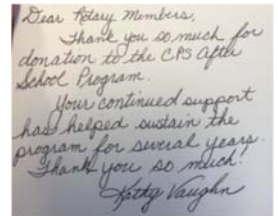 Dear Rotary Members,
Thank you so much for
donation to the CPS After
School Program.
Your continued support
has helped sustain the
program for several years.
Thank you so much!
Kathy Vaughn